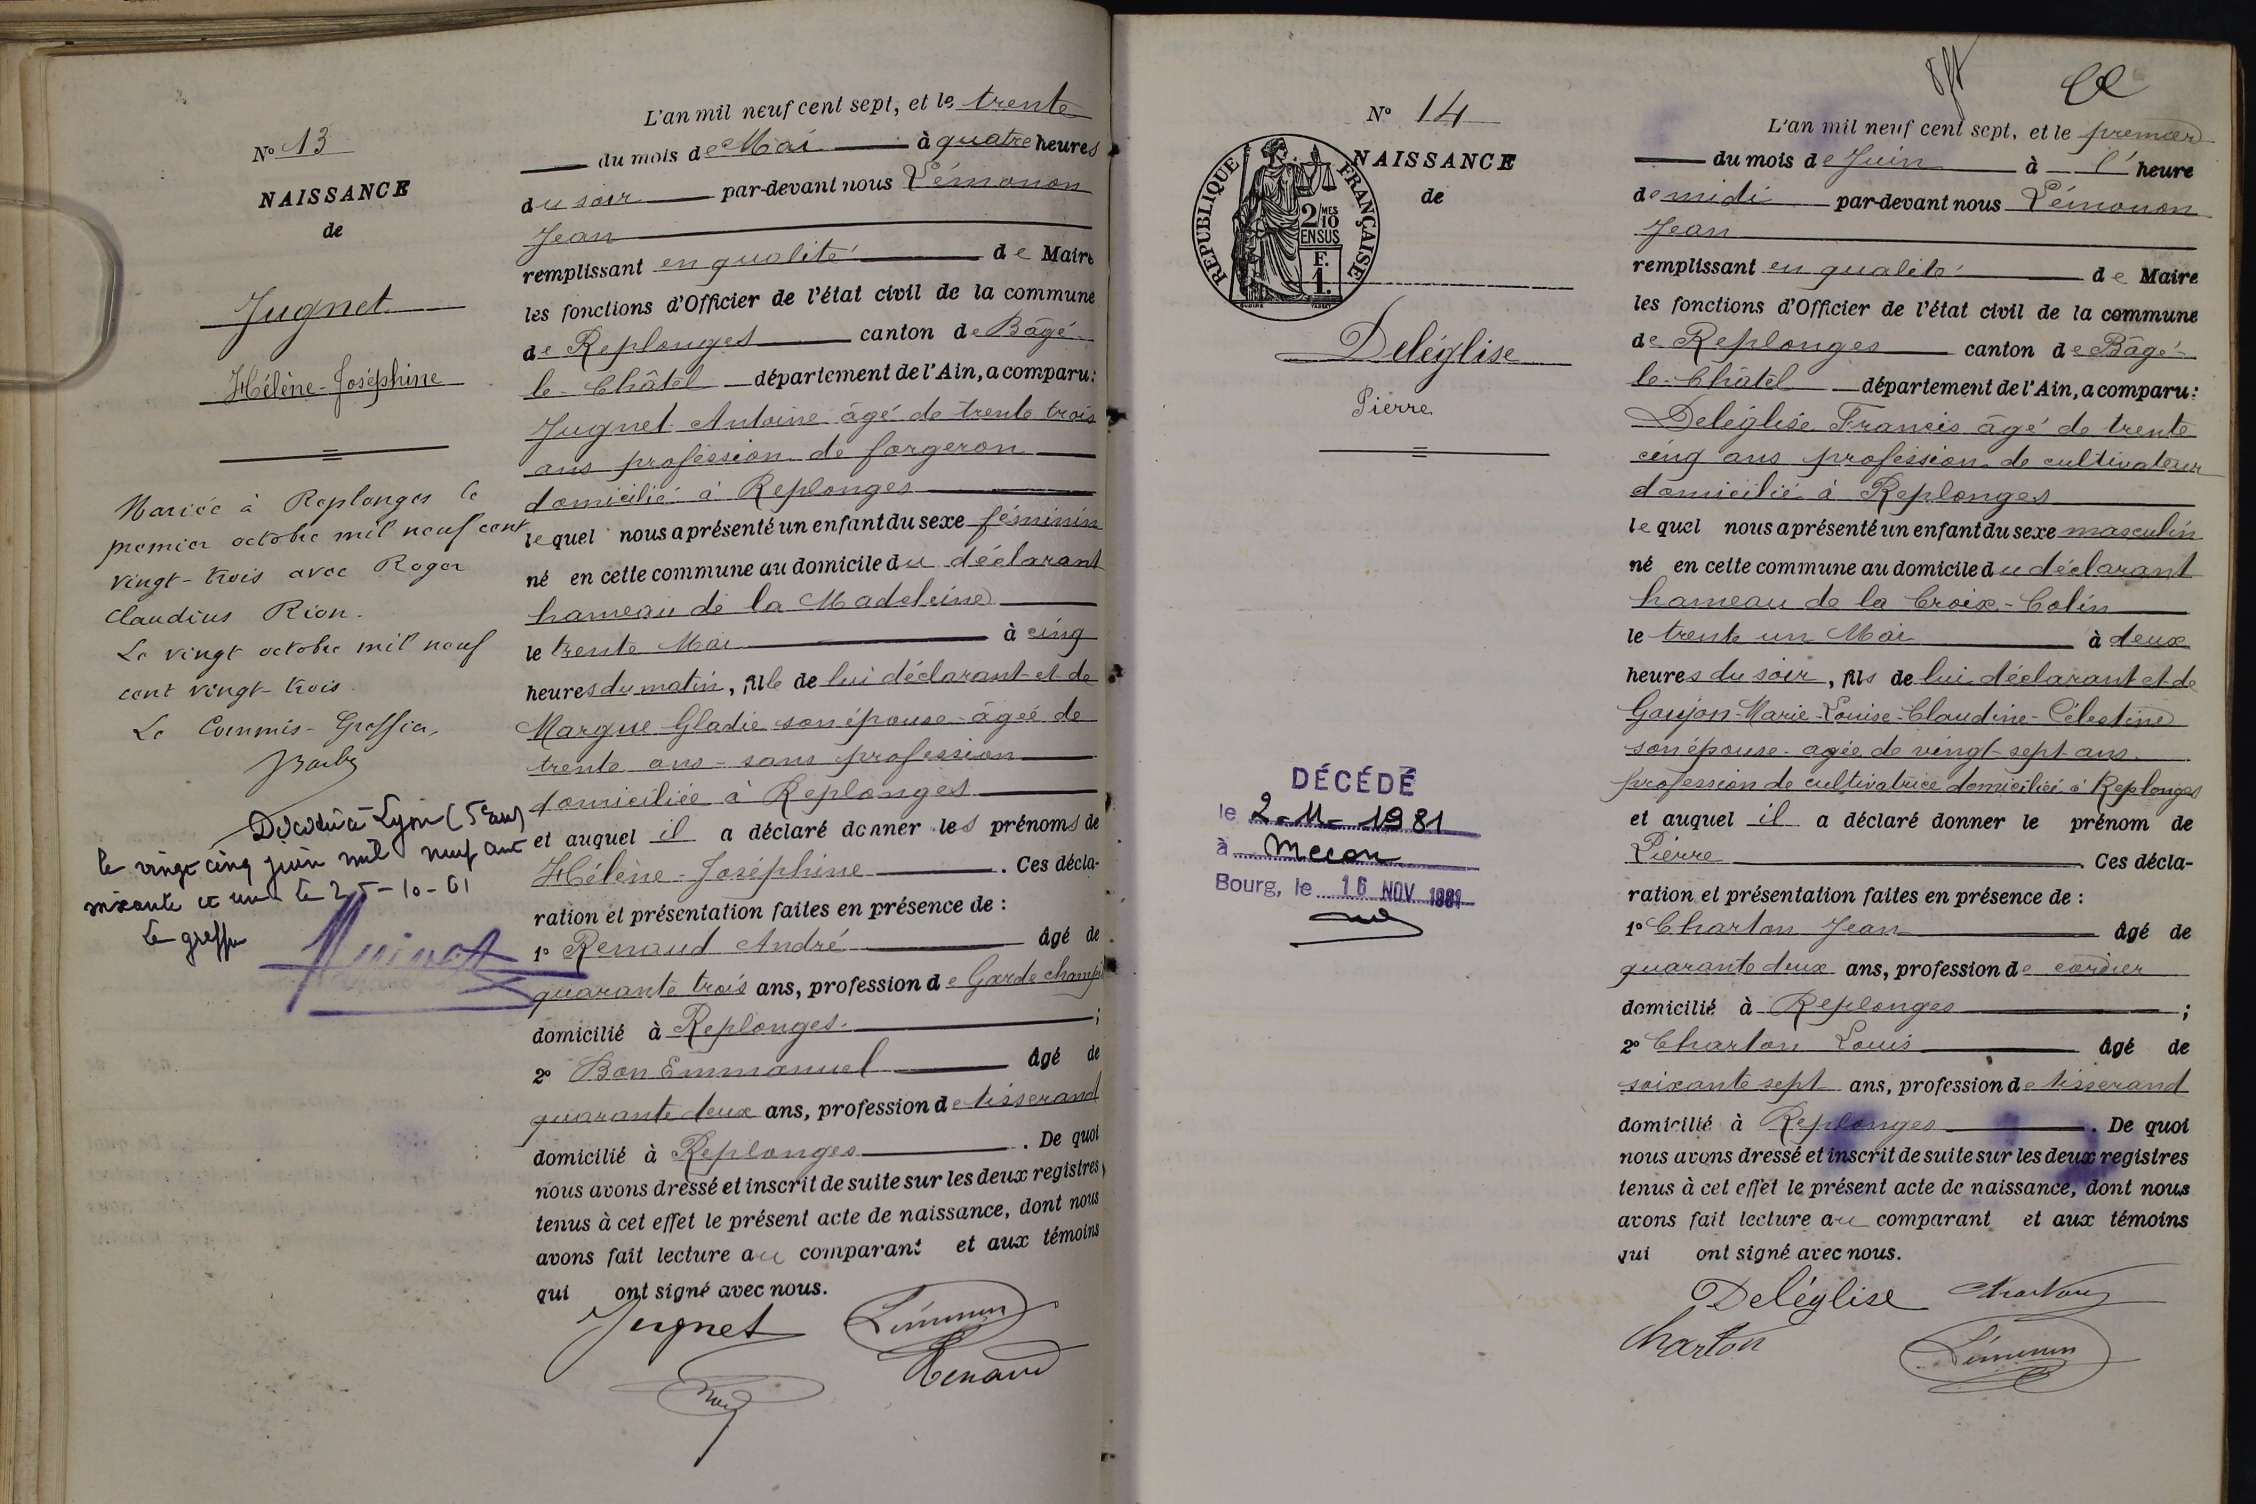 N° 13
NAISSANCE
de
Jugnet
Hélène-Joséphine
Mariée à Replonges le
premier octobre mil neuf cent
vingt-trois avec Roger
Claudius Rion.
Le vingt octobre mil neuf
cent vingt-trois.
Le Commis-Greffier,
Décédée à Lyon (5e arr)
le vingt cinq juin mil neuf cent
soixante et un le 25-10-61
Le greffier
L'an mil neuf cent sept, et le trente
du mois de Mai à quatre heures
du soir par-devant nous Lémonon
Jean
remplissant en qualité de Maire
les fonctions d'Officier de l'état civil de la commune
de Replonges canton de Bâgé
le-Châtel département de l'Ain, a comparu:
Jugnet Antoine âgé de trente trois
ans profession de forgeron
domicilié à Replonges
lequel nous a présenté un enfant du sexe féminin
né en cette commune au domicile du déclarant
hameau de la Madeleine
le trente Mai à cinq
heures du matin, fille de lui déclarant et de
Margue Gladie son épouse âgée de
trente ans - sans profession
domiciliée à Replonges
et auquel il a déclaré donner les prénoms de
Hélène-Joséphine. Ces décla-
ration et présentation faites en présence de :
1° Renaud André âgé de
quarante trois ans, profession de Garde champ
domicilié à Replonges. ;
2° Bon Emmanuel âgé de
quarante deux ans, profession de tisserand
domicilié à Replonges. De quoi
nous avons dressé et inscrit de suite sur les deux registres,
tenus à cet effet le présent acte de naissance, dont nous
avons fait lecture au comparant et aux témoins
qui ont signé avec nous.
Jugnet Lémonon
Renaud
N° 14
NAISSANCE
de
RÉPUBLIQUE FRANÇAISE
2/10 MES
EN SUS
F.
1.
Deléglise
Pierre
DÉCÉDÉ
le 2-11-1981
à Mecon
Bourg, le 16 NOV 1981
L'an mil neuf cent sept, et le premier
du mois de Juin à l' heure
de midi par-devant nous Lémonon
Jean
remplissant en qualité de Maire
les fonctions d'Officier de l'état civil de la commune
de Replonges canton de Bâgé-
le-Châtel département de l'Ain, a comparu:
Deléglise Francis âgé de trente
cinq ans profession de cultivateur
domicilié à Replonges
lequel nous a présenté un enfant du sexe masculin
né en cette commune au domicile du déclarant
hameau de la Croix-Colin
le trente un Mai à deux
heures du soir, fils de lui déclarant et de
Goujon Marie-Louise-Claudine-Célestine
son épouse âgée de vingt-sept ans
profession de cultivatrice domiciliée à Replonges
et auquel il a déclaré donner le prénom de
Pierre. Ces décla-
ration et présentation faites en présence de :
1° Charton Jean âgé de
quarante deux ans, profession de cordier
domicilié à Replonges ;
2° Charton Louis âgé de
soixante sept ans, profession de tisserand
domicilié à Replonges. De quoi
nous avons dressé et inscrit de suite sur les deux registres
tenus à cet effet le présent acte de naissance, dont nous
avons fait lecture au comparant et aux témoins
qui ont signé avec nous.
Deléglise Charton
Charton Lémonon